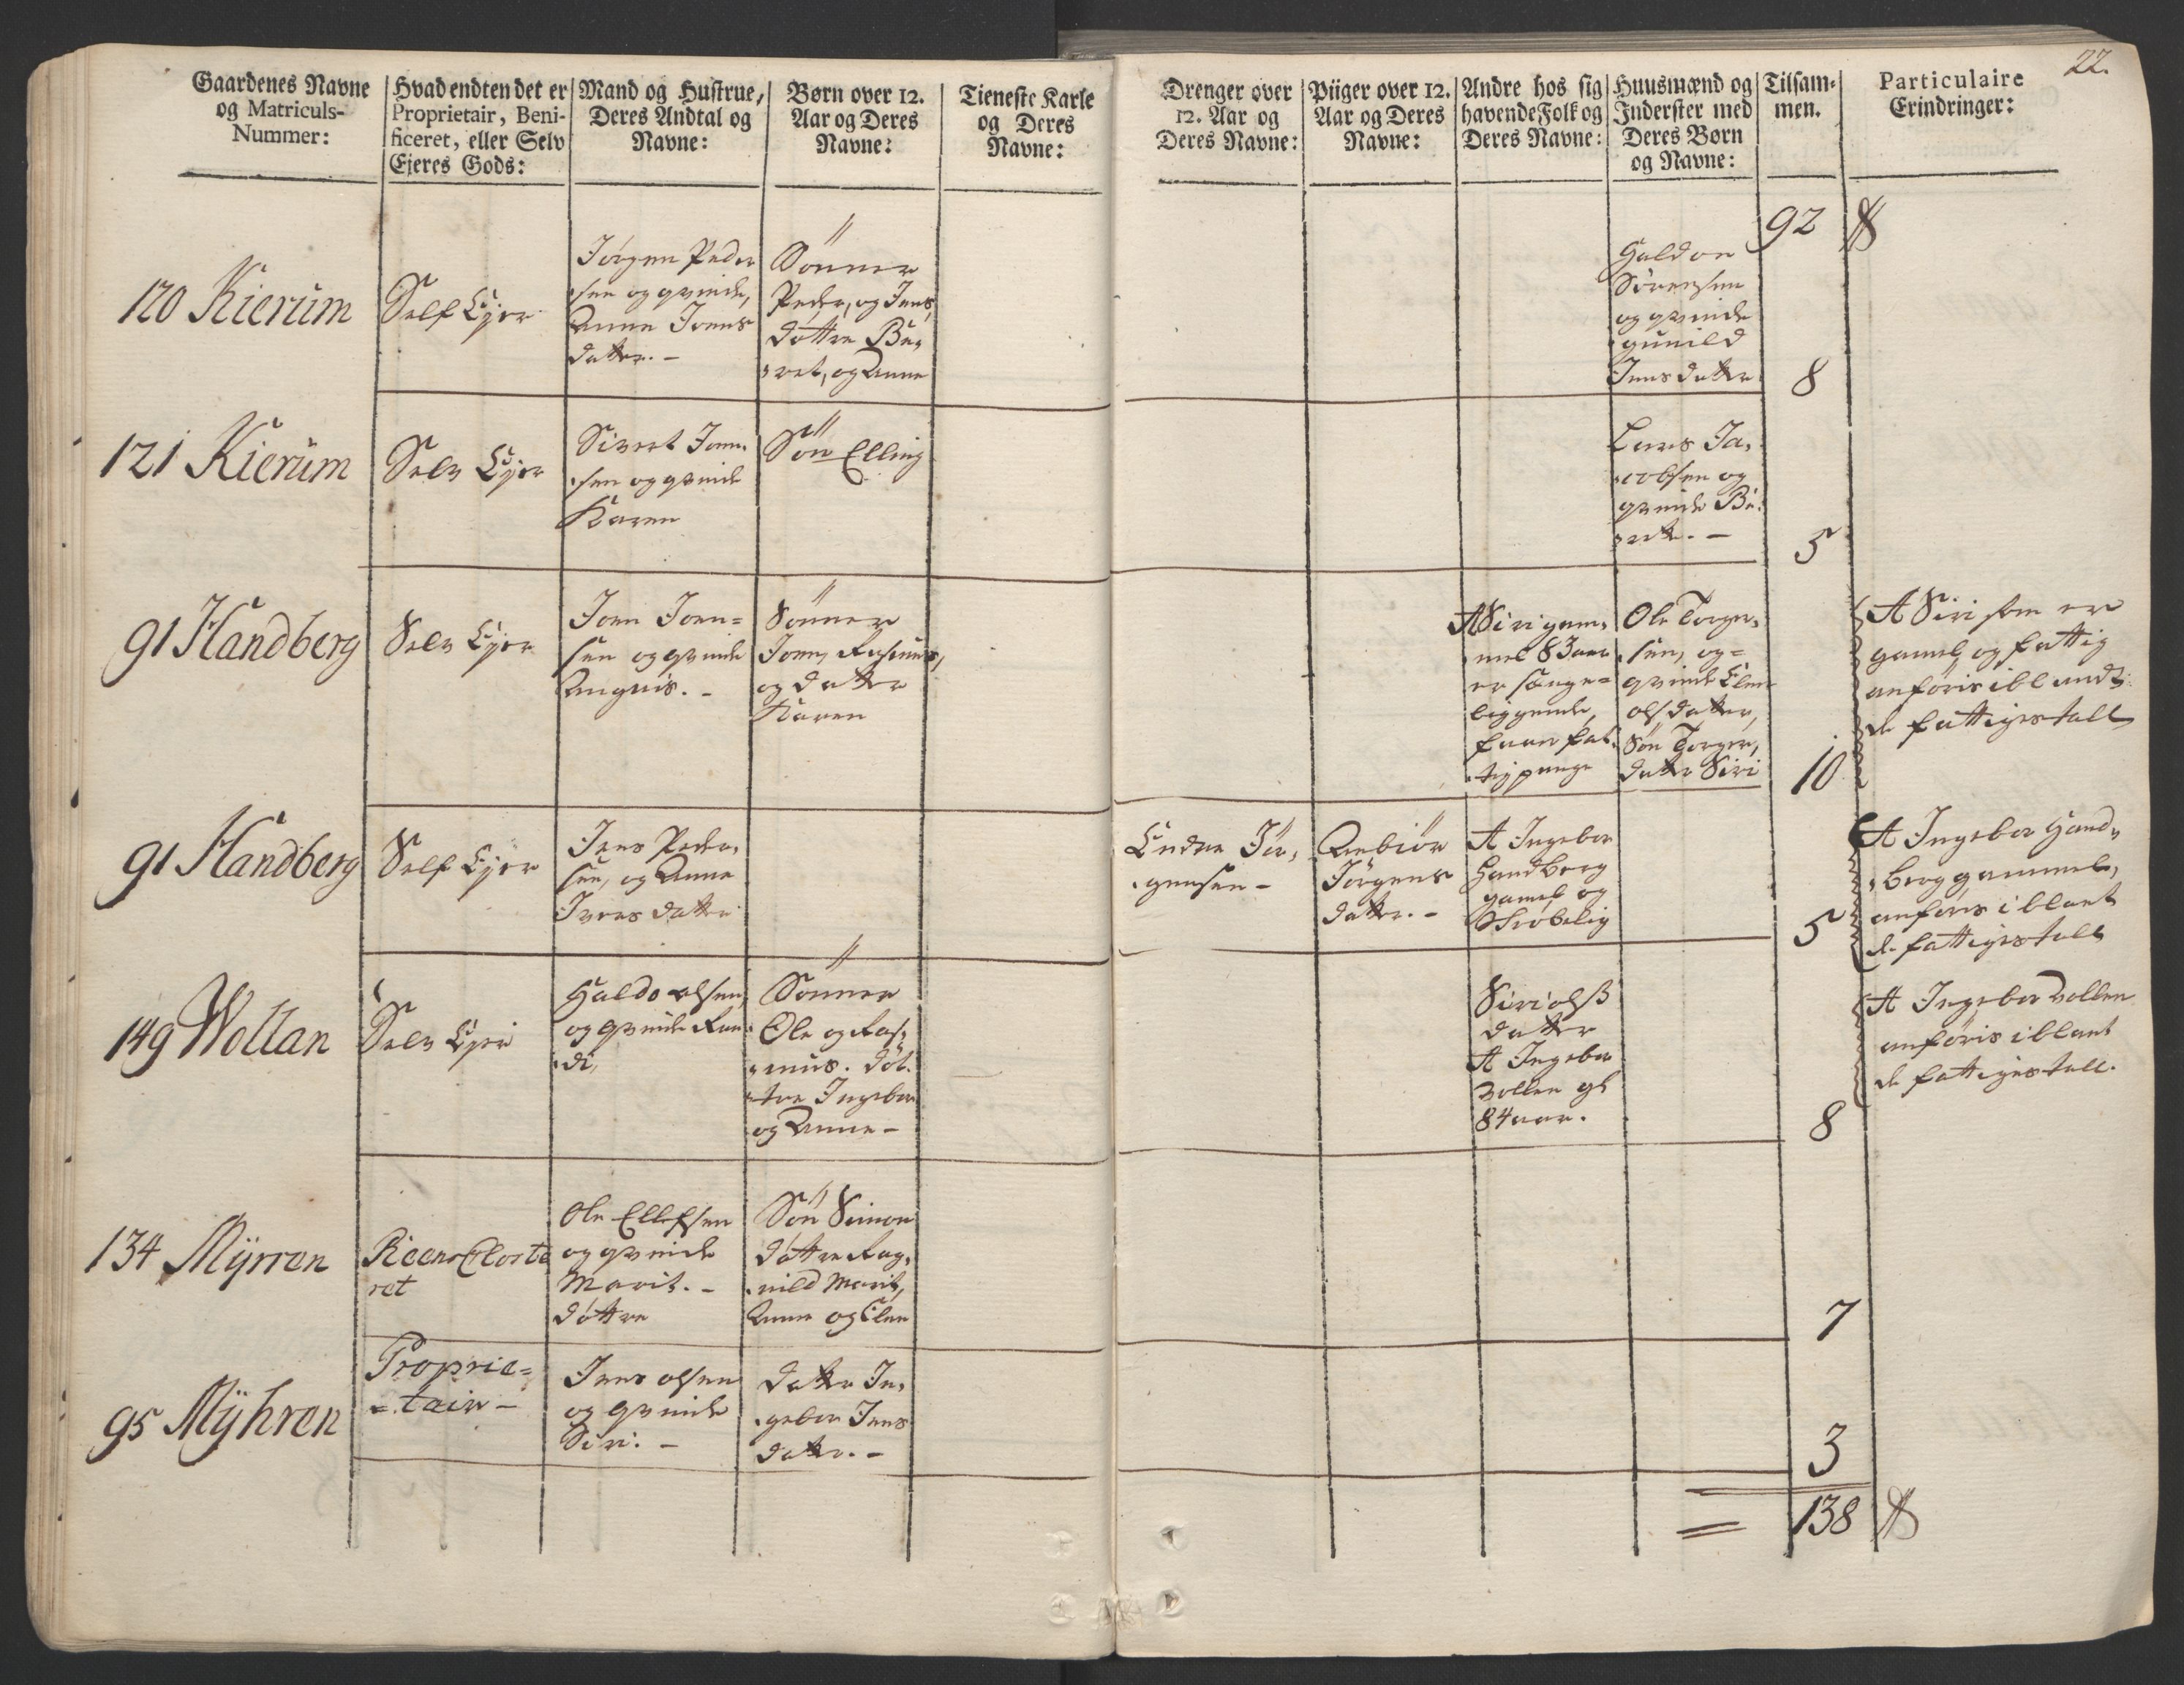 22.
Gaardenes Navne
og Matriculs-
Nummer:
Hvad endten det er
Proprietair, Beni-
ficeret, eller Selv
Ejeres Gods:
Mand og Hustrue,
Deres Andtal og
Navne:
Børn over 12.
Aar og Deres
Navne:
Tieneste Karle
og Deres
Navne:
Drenger over
12. Aar og
Deres Navne:
Piiger over 12.
Aar og Deres
Navne:
Andre hos sig
havende Folk og
Deres Navne:
Huusmænd og
Inderster med
Deres Børn
og Navne:
Tilsam-
men.
Particulaire
Erindringer:
92
120 Kierum
Self Ejer
Jørgen Peder
sen og qvinde,
Anne Joens
datter. -
Sønner
Peder, og Jens,
døttre Be,
ret, og Anne
Haldor
Sørensen
og qvinde
gunild
Jensdatter
8
121 Kierum
Selv Ejer
Sivert Joen
sen og qvinde
Karen
Søn Elling
Lars Ja,
cobsen og
qvinde Be,
rte. -
5
91 Handberg
Selv Ejer
Joen Joen=
sen og qvinde
Angnis. -
Sønner
Joen, Rasmus,
og datter
Karen
A Siri gam,
mel 83 aar
er senge=
liggende,
faar fat,
tig penge
Ole Torger,
sen, og=
qvinde Elen
olsdatter,
Søn Torger,
datter Siri
10
A Siri som er
gamel og fattig
anføris iblandt
de fattiges tall
91 Handberg
Self Ejer
Jens Peder,
sen, og Anne
Ivers datter
Endre Jør,
gensen -
Anbiør
Jørgens
datter. -
A Ingebor
Handberg
gamel og
Skrøbelig
5
A Ingebor Hand,
berg gammel,
anføris iblant
de fattiges tall
149 Wollan
Selv Ejer
Haldo olsen,
og qvinde Ran
di,
Sønner
Ole og Ras,
mus. døt.
tre Ingebor
og Anne -
Siri olss
datter
A Ingebor
vollen gl
84 aar.
8
A Ingebor vollen
anføris iblant
de fattiges tall.
134 Myrren
Reens Closte
ret
Ole Ellefsen
og qvinde
Marit. -
døttre
Søn Simon
døttre Rag,
nild Marit,
Anne og Elen
7
95 Myhren
Proprie=
=tair -
Jens olsen
og qvinde
Siri. -
datter In,
gebor Jens
datter. -
3
138